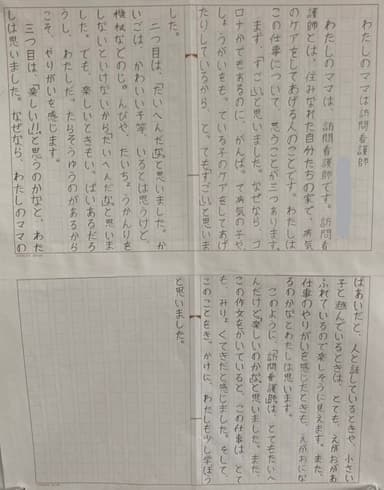 わたしのママは訪問看護師
わたしのママは、訪問看護師です。訪問看
護師とは、住みなれた自分たちの家で、病気
のケアをしてあげる人のことです。わたしは
この仕事について、思うことが三つあります。
まず、「すごい」と思いました。なぜなら、コ
ロナかできあるのに、がんばって病気の子や、
しょうがいをもっている子のケアをしてあげ
たりしているから、とってもすごいと思いま
した。
二つ目は、「たいへんだな」と思いました。か
いごは、かわいい子等、いるとは思うけど、
などのじゅんびや、たいちょうかんりを
しないといけないからたいへんだなと思いま
した。でも、楽しいときもいっぱいあるだろ
うし、わたしだったらそうゆうのがあるから
こそ、やりがいを感じます。
三つ目は、「楽しい!!」と思うのかなと、わた
しは思いました。なぜなら、わたしのママの
ばあいだと、人と話しているときや、小さい
子と遊んでいるときは、とても、えがおがあ
ふれているので楽しそうに見えます。また、
仕事のやりがいを感じたときも、えがおにな
るのかなとわたしは思います。
このように、訪問看護師は、とてもたいへ
んだけど「楽しいのかな」と思いました。また、
この作文をかいていると、この仕事は、とて
も、みりょくてきだと感じました。そして、
このことをき、かけに、わたしも少し学ぼう
と思いました。